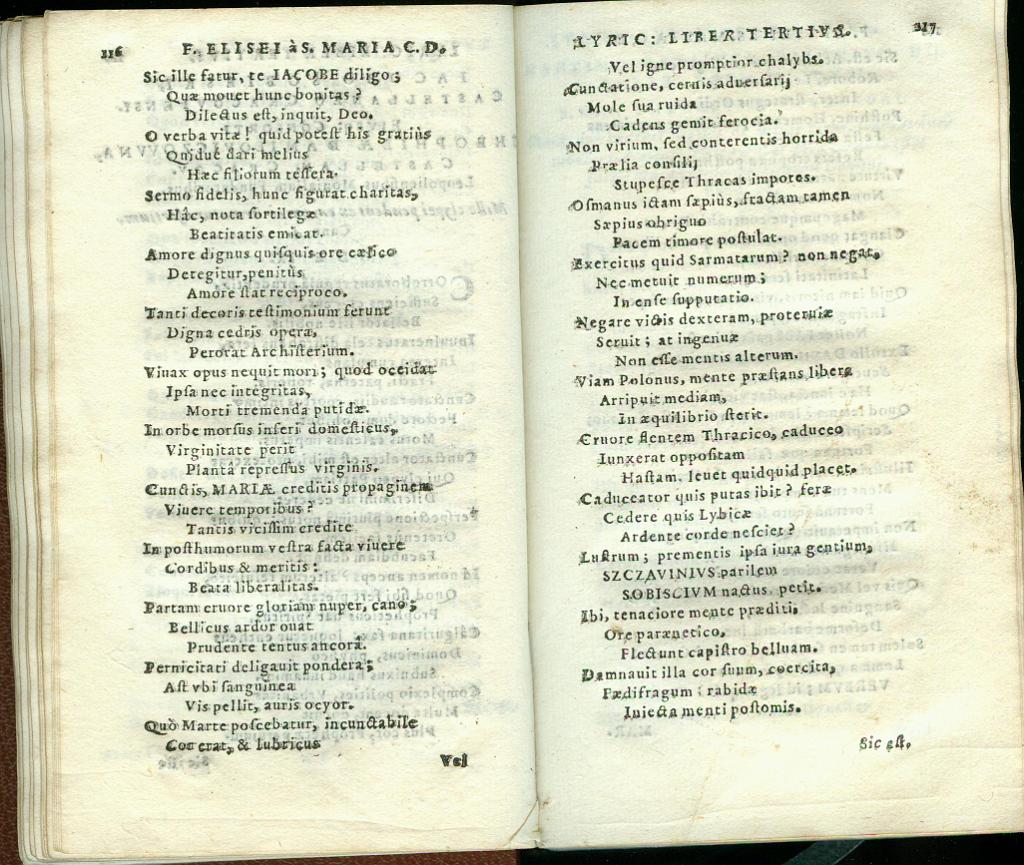 216 F. ELISEI à S. MARIA C. D.
Sic ille fatur, te IACOBE diligo;
Quæ mouet hunc bonitas?
Dilectus est, inquit, Deo.
O verba vitæ! quid potest his gratiùs
Quiduè dari meliùs
Hæc filiorum tessera.
Sermo fidelis, hunc figurat charitas,
Hâc, nota sortilegæ
Beatitatis emicat.
Amore dignus quisquis ore cælico
Detegitur, penitùs
Amore stat reciproco.
Tanti decoris testimonium ferunt
Digna cedris opera,
Perorat Archisterium.
Viuax opus nequit mori; quod occidat
Ipsa nec integritas,
Morti tremenda putidæ.
In orbe morsus inferi domesticus,
Virginitate perit
Plantâ repressus virginis.
Cunctis, MARIÆ creditis propaginem
Viuere temporibus?
Tantis vicissim credite
In posthumorum vestra facta viuere
Cordibus & meritis:
Beata liberalitas.
Partam cruore gloriam nuper, cano;
Bellicus ardor ouat
Prudente tentus ancorâ.
Pernicitati deligauit pondera;
Ast vbi sanguinea
Vis pellit, auris ocyor.
Quò Marte poscebatur, incunctabile
Cor erat, & lubricus
Vel
LYRIC: LIBER TERTIVS. 217
Vel igne promptior chalybs.
Cunctatione, cernis aduersarij
Mole sua ruida
Cadens gemit ferocia.
Non virium, sed conterentis horrida
Prælia consilij
Stupesce Thracas impotes.
Osmanus ictam sæpiùs, stactam tamen
Sæpius obriguo
Pacem timore postulat.
Exercitus quid Sarmatarum? non negat,
Nec metuit numerum;
In ense supputatio.
Negare victis dexteram, proteruiæ
Seruit; at ingenuæ
Non esse mentis alterum.
Viam Polonus, mente præstans libera
Arripuit mediam,
In æquilibrio stetit.
Cruore flentem Thracico, caduceo
Iunxerat oppositam
Hastam. leuet quidquid placet.
Caduceator quis putas ibit? feræ
Cedere quis Lybicæ
Ardente corde nesciet?
Lustrum; prementis ipsa iura gentium,
SZCZAVINIVS parilem
SOBISCIVM nactus, petit.
Ibi, tenaciore mente præditi,
Ore parænetico,
Flectunt capistro belluam.
Damnauit illa cor suum, coercita,
Fædifragum: rabidæ
Iniecta menti postomis.
Sic est.